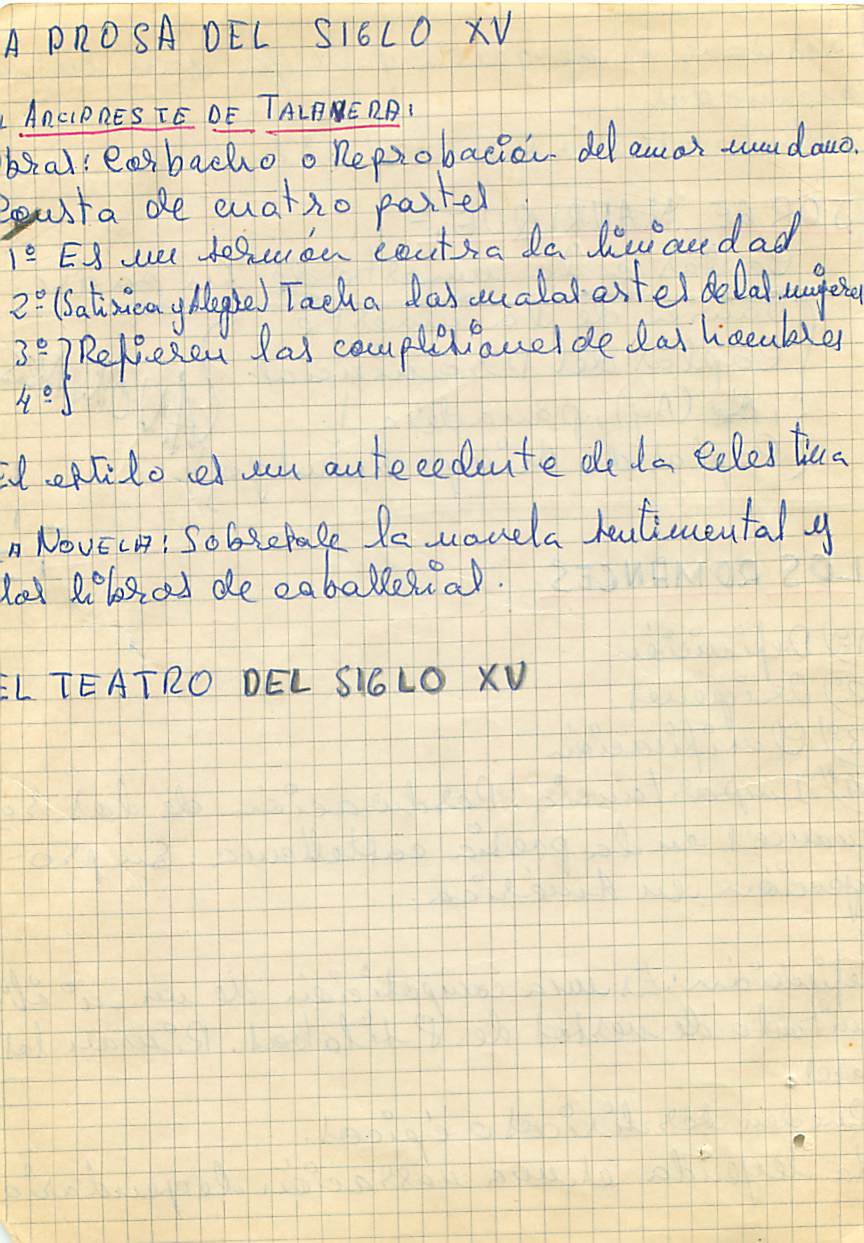 A PROSA DEL SIGLO XV
L ARCIPRESTE DE TALAVERA:
obras: Corbacho o Reprobación del amor mundano.
Consta de cuatro partes
1º Es un sermón contra la liviandad
2º (Satirica y Alegre) Tacha las malas artes de las mujeres
3º } Refieren las complisiones de los hombres
4º
El estilo es un antecedente de la Celestina
A NOVELA: Sobresale la novela sentimental y
los libros de caballerias.
EL TEATRO DEL SIGLO XV